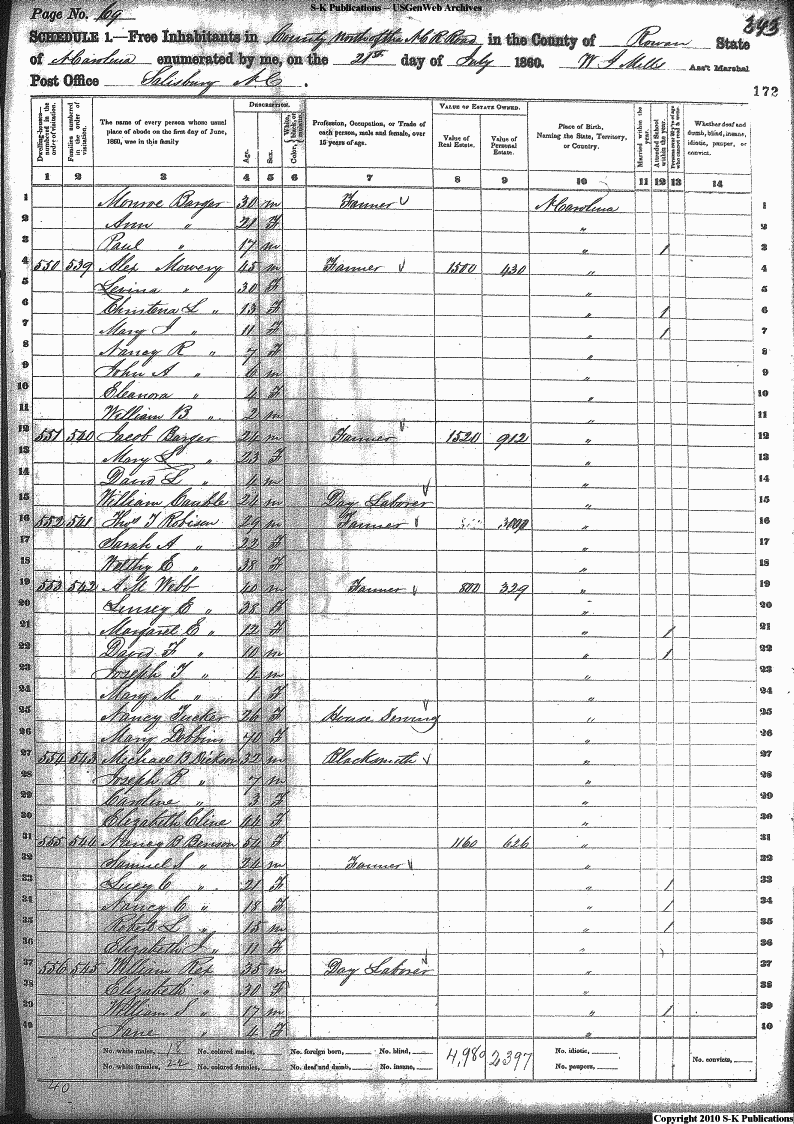 S-K Publications – USGenWeb Archives
Page No. 69
343
SCHEDULE 1.—Free Inhabitants in County North of the N C R Road in the County of Rowan State
of N Carolina enumerated by me, on the 21st day of July 1860. W J Mills Ass't Marshal
Post Office Salisbury N C.
172
Dwelling-houses—numbered in the order of visitation.
Families numbered in the order of visitation.
The name of every person whose usual place of abode on the first day of June, 1860, was in this family
DESCRIPTION.
Age.
Sex.
Color,
Profession, Occupation, or Trade of each person, male and female, over 15 years of age.
VALUE OF ESTATE OWNED.
Value of Real Estate.
Value of Personal Estate.
Place of Birth, Naming the State, Territory, or Country.
Married within the year.
Attended School within the year.
Whether deaf and dumb, blind, insane, idiotic, pauper, or convict.
1 2 3 4 5 6 7 8 9 10 11 12 13 14
1 Monroe Barger 30 m Farmer N Carolina 1
2 Ann " 21 F " 2
3 Paul " 17 m " 1 3
4 550 539 Alex Mowery 45 m Farmer 1500 430 " 4
5 Levina " 30 F " 5
6 Christena L " 13 F " 1 6
7 Mary J " 11 F " 1 7
8 Nancy R " 7 F " 8
9 John A " 6 m " 9
10 Eleanora " 4 F " 10
11 William B " 2 m " 11
12 551 540 Jacob Barger 24 m Farmer 1520 912 " 12
13 Mary L " 23 F " 13
14 David L " 4 m " 14
15 William Cauble 24 m Day Laborer " 15
16 552 541 Thos J Robison 29 m Farmer " 16
17 Sarah A " 22 F " 17
18 Welthy E " 38 F " 18
19 553 542 A M Webb 40 m Farmer 800 329 " 19
20 Linsey E " 38 F " 20
21 Margaret E " 12 F " 1 21
22 David F " 10 m " 1 22
23 Joseph T " 4 m " 23
24 Mary M " 1 F " 24
25 Nancy Tucker 26 F House Serving " 25
26 Mary Dobbins 70 F " 26
27 554 543 Michael B Dickson 32 m Blacksmith " 27
28 Joseph B " 7 m " 28
29 Caroline " 3 F " 29
30 Elizabeth Cline 44 F " 30
31 555 544 Nancy B Benson 54 F 1160 626 " 31
32 Samuel S " 24 m Farmer " 32
33 Lucy C " 21 F " 1 33
34 Nancy C " 18 F " 1 34
35 Robert L " 15 m " 1 35
36 Elizabeth J " 11 F " 36
37 556 545 William Rex 35 m Day Laborer " 37
38 Elizabeth " 30 F " 38
39 William S " 17 m " 1 39
40 Jane " 4 F " 40
No. white males, 18 No. colored males, No. foreign born, No. blind, 4,980 2397 No. idiotic, No. convicts,
No. white females, 22 No. colored females, No. deaf and dumb, No. insane, No. paupers,
40
Copyright 2010 S-K Publications